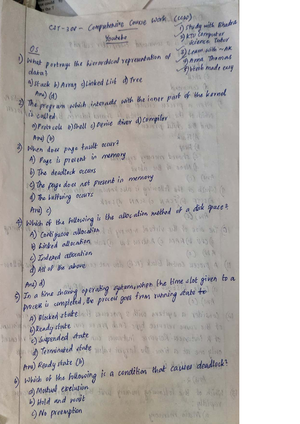 CST-308 - Comprehensive Course Work (CCW)
Youtube
1) Study with Khadeeja
2) KTU Computer Science Tutor
3) Learn with-AK
4) Anna Thomas
5) Works made easy
Q1
1) What portrays the hierarchical representation of data?
a) Stack b) Array c) Linked List d) Tree
Ans) (d)
2) The program which interacts with the inner part of the kernel is called
a) Protocols b) Shell c) Device driver d) Compiler
Ans) (b)
3) When does page fault occur?
a) Page is present in memory
b) The deadlock occurs
c) The page does not present in memory
d) The buffering occurs
Ans) c)
4) Which of the following is the allocation method of a disk space?
a) Contiguous allocation
b) Linked allocation
c) Indexed allocation
d) All of the above
Ans) d)
5) In a time sharing operating system, when the time slot given to a
process is completed, the process goes from running state to
a) Blocked state
b) Ready state
c) Suspended state
d) Terminated state
Ans) Ready state (b)
6) Which of the following is a condition that causes deadlock?
a) Mutual exclusion
b) Hold and wait
c) No preemption